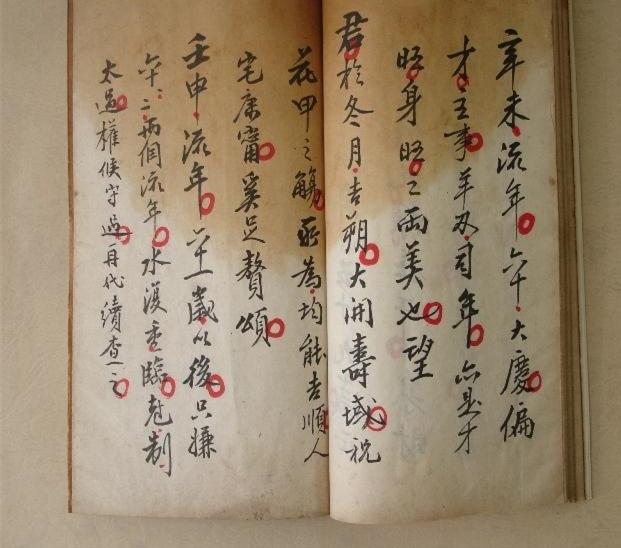 辛未流年六十大慶偏
才主事羊刃司年亦是才
旺身旺之兩美也望
君於冬月吉朔大開壽域祝
花甲之觴所為均能吉順人
宅康甯奚足贅頌
壬申流年 歲以後只嫌
六十二兩個流年水濩重臨尅制
太過權候守過再代續查之